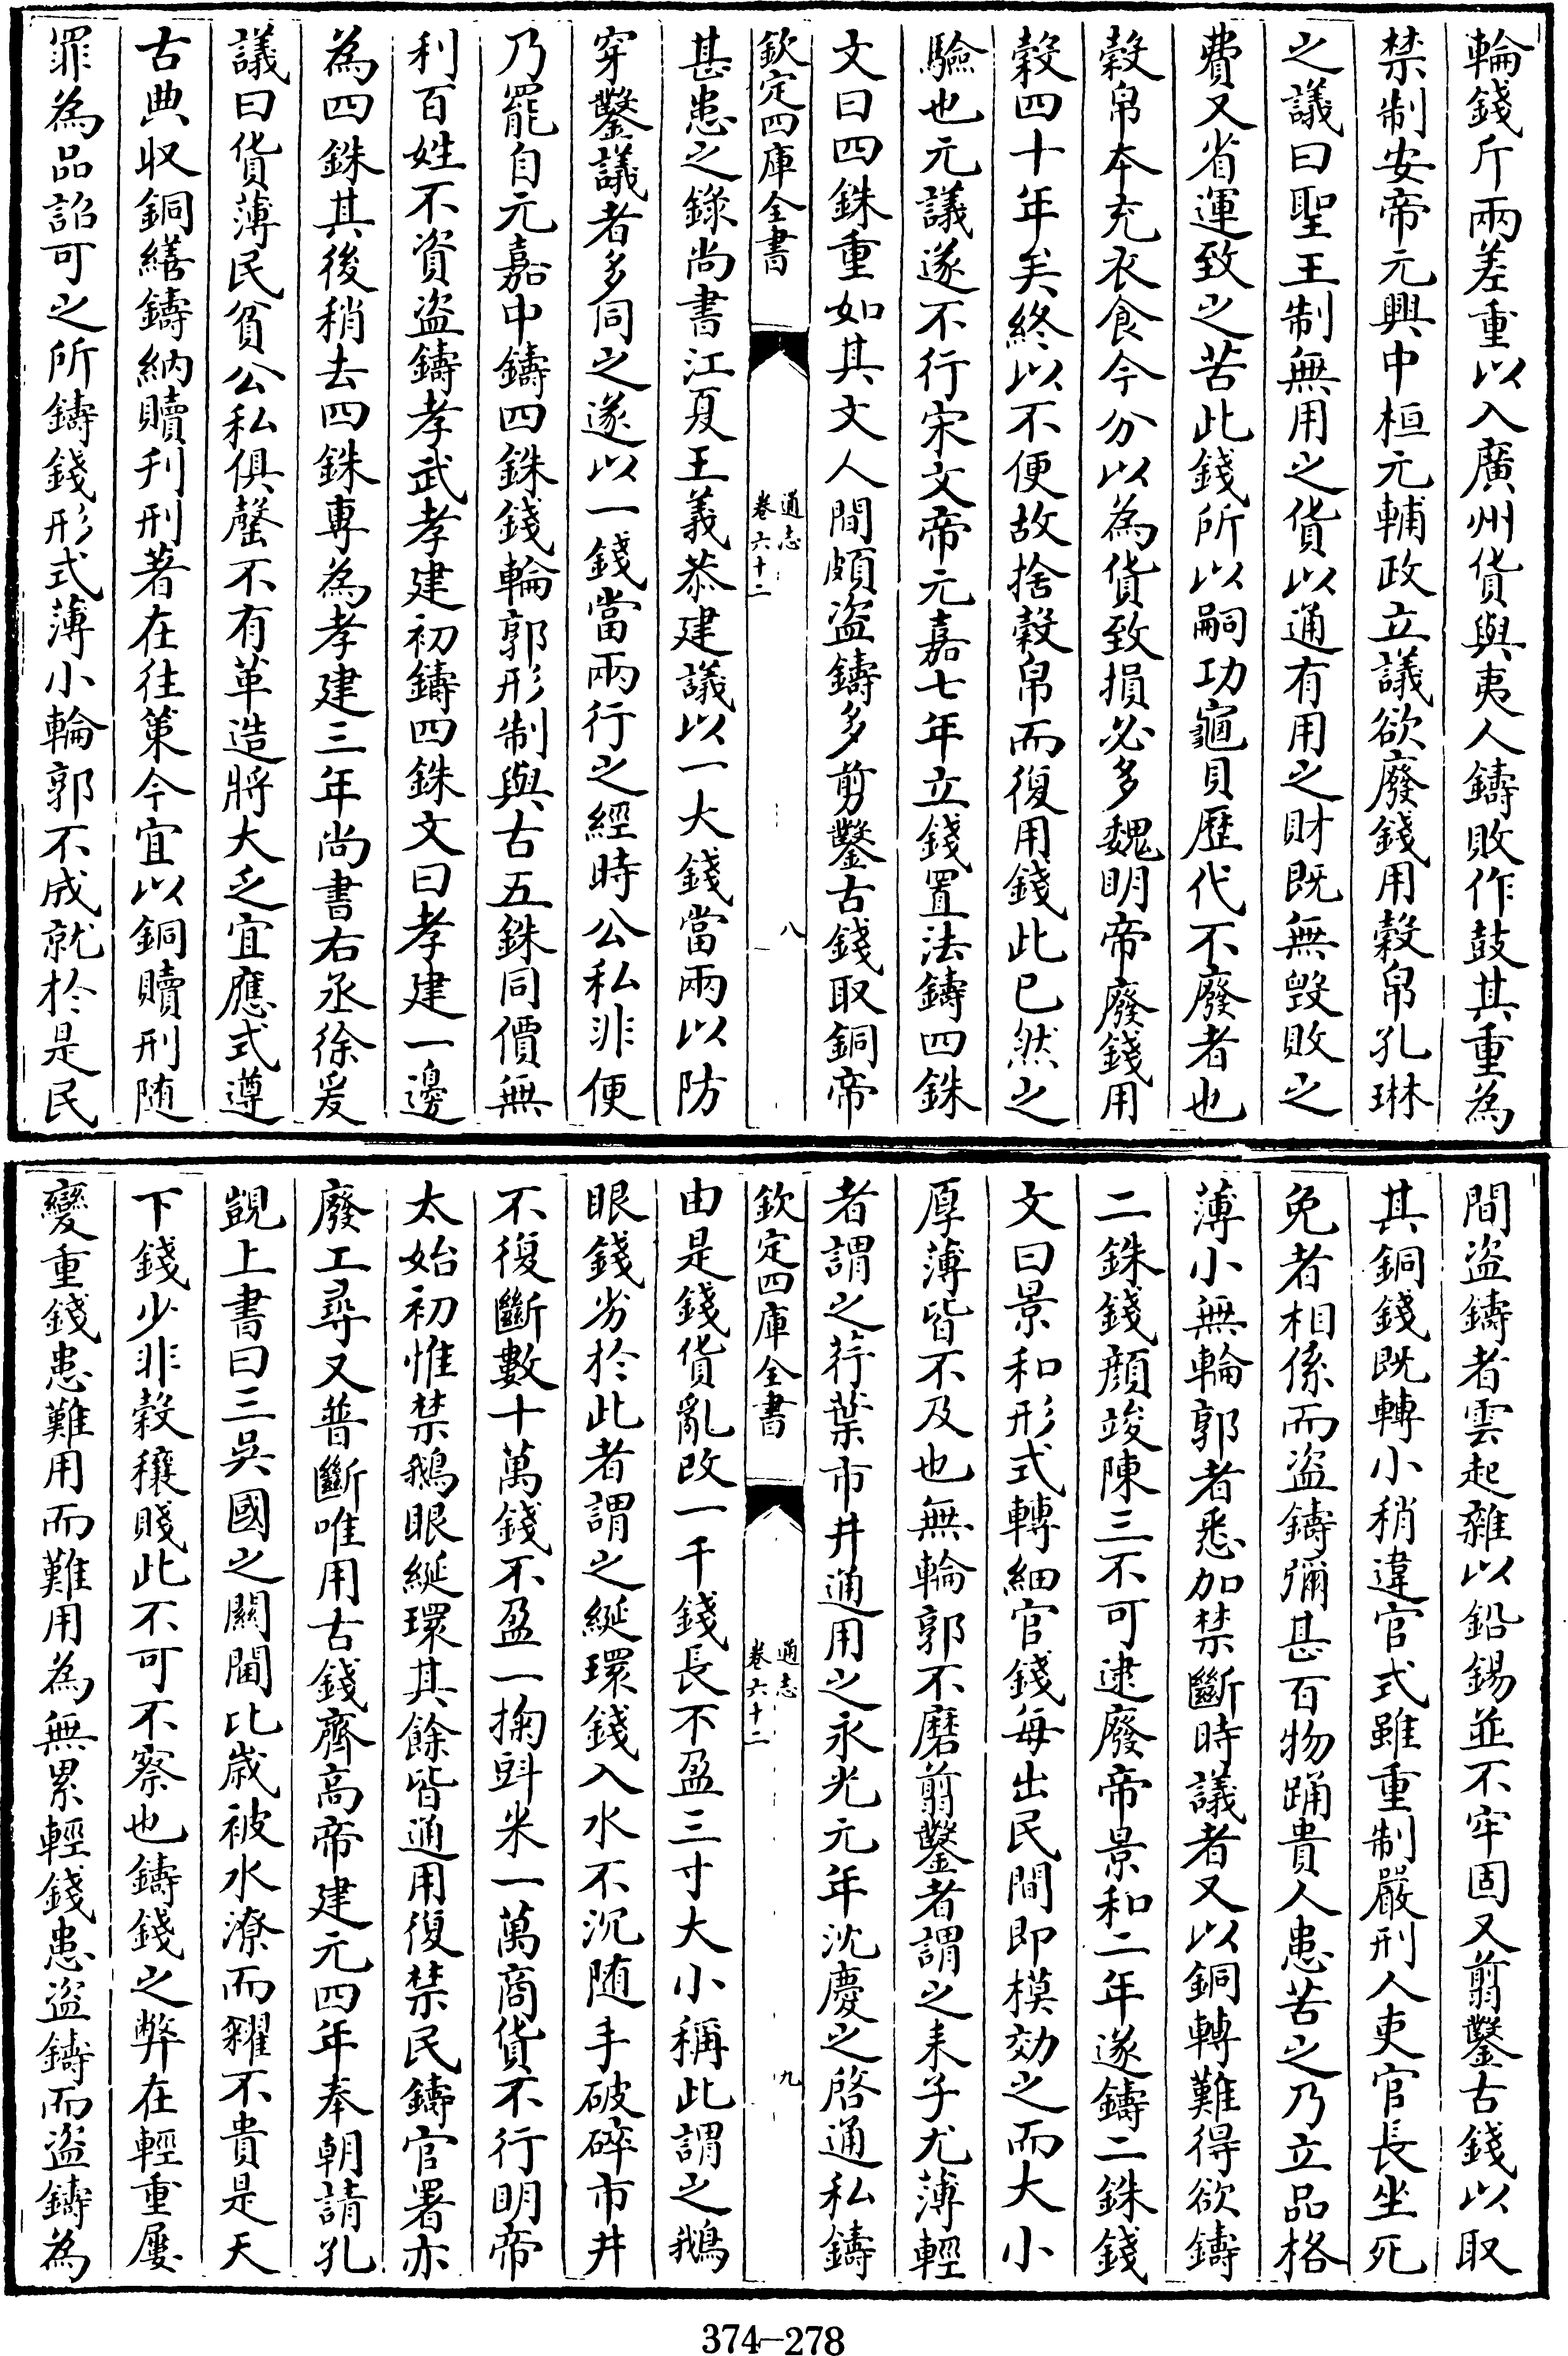 輪錢斤兩差重以入廣州貨與夷人鑄敗作鼓其重為
禁制安帝元興中桓元輔政立議欲廢錢用穀帛孔琳
之議曰聖王制無用之貨以通有用之財既無毀敗之
費又省運致之苦此錢所以嗣功龜貝歷代不廢者也
穀帛本充衣食今分以為貨致損必多魏明帝廢錢用
穀四十年矣終以不便故捨穀帛而復用錢此已然之
驗也元議遂不行宋文帝元嘉七年立錢置法鑄四銖
文曰四銖重如其文人間頗盜鑄多剪鑿古錢取銅帝
欽定四庫全書
通志
卷六十二
八
甚患之錄尚書江夏王義恭建議以一大錢當兩以防
穿鑿議者多同之遂以一錢當兩行之經時公私非便
乃罷自元嘉中鑄四銖錢輪郭形制與古五銖同價無
利百姓不資盜鑄孝武孝建初鑄四銖文曰孝建一邊
為四銖其後稍去四銖專為孝建三年尚書右丞徐爰
議曰貨薄民貧公私俱罄不有革造將大乏宜應式遵
古典收銅繕鑄納贖刋刑著在往策今宜以銅贖刑随
罪為品詔可之所鑄錢形式薄小輪郭不成就於是民
間盜鑄者雲起雜以鉛錫並不牢固又翦鑿古錢以取
其銅錢既轉小稍違官式雖重制嚴刑人吏官長坐死
免者相係而盜鑄彌甚百物踊貴人患苦之乃立品格
薄小無輪郭者悉加禁斷時議者又以銅轉難得欲鑄
二銖錢顔竣陳三不可逮廢帝景和二年遂鑄二銖錢
文曰景和形式轉細官錢每出民間即模効之而大小
厚薄皆不及也無輪郭不磨翦鑿者謂之耒子尤薄輕
者謂之荇葉市井通用之永光元年沈慶之啓通私鑄
欽定四庫全書
通志
卷六十二
九
由是錢貨亂改一千錢長不盈三寸大小稱此謂之鵝
眼錢劣於此者謂之綖環錢入水不沉随手破碎市井
不復斷數十萬錢不盈一掬斗米一萬商貨不行明帝
太始初惟禁鵝眼綖環其餘皆通用復禁民鑄官署亦
廢工尋又普斷唯用古錢齊高帝建元四年奉朝請孔
覬上書曰三吳國之關閫比歲被水潦而糴不貴是天
下錢少非穀穰賤此不可不察也鑄錢之弊在輕重屢
變重錢患難用而難用為無累輕錢患盜鑄而盜鑄為
374-278